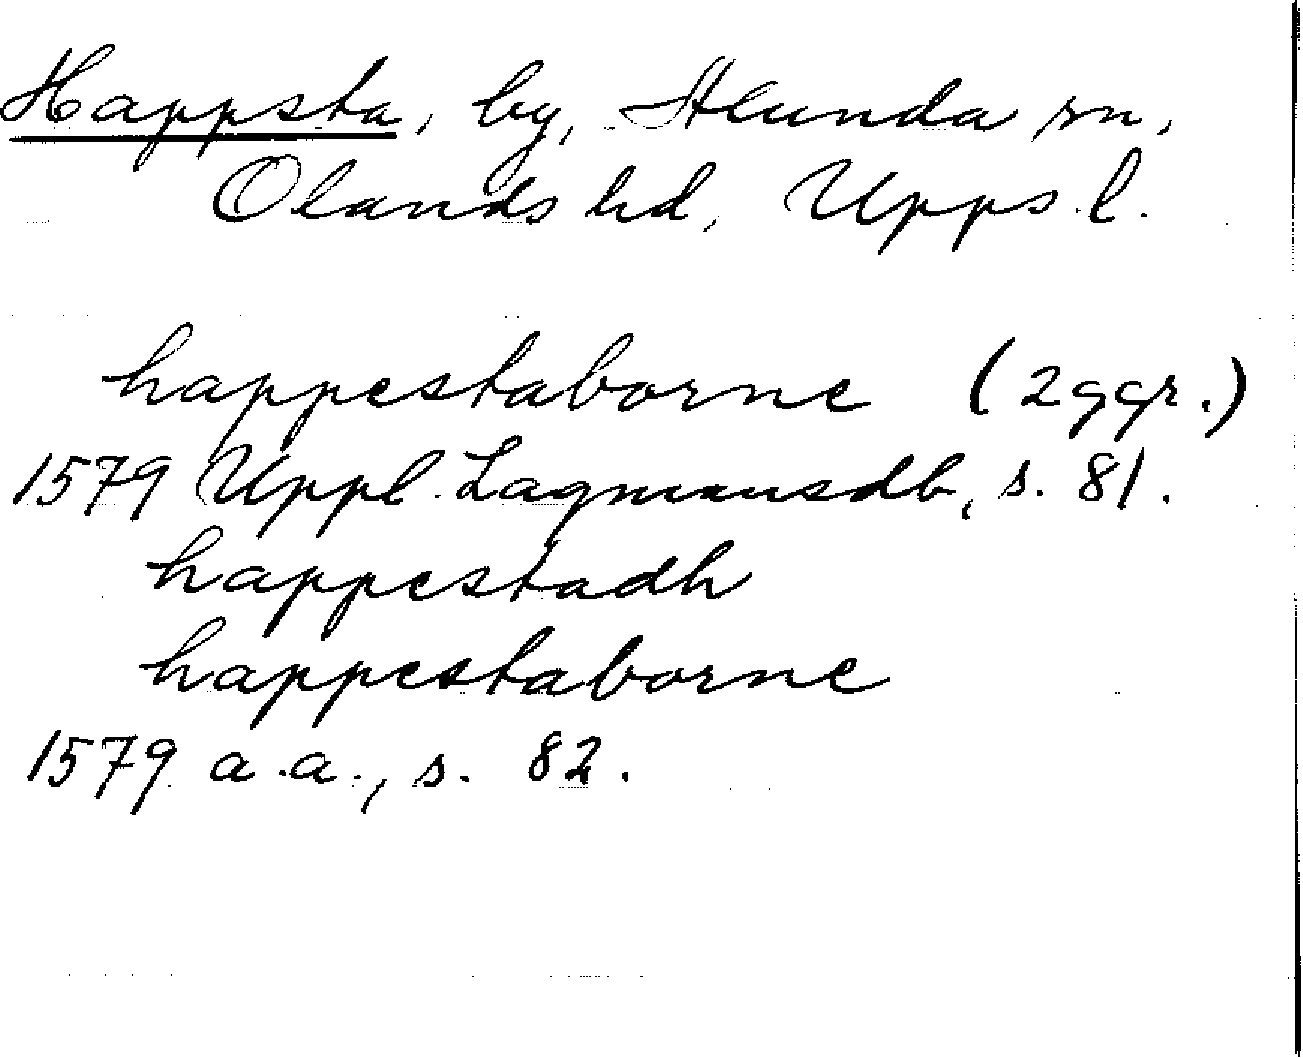 Happsta, by, Stlunda sn,
Olands hd, Upps. l.
happestaborne (2 ggr.)
1579 Uppl. Lagmansdb, s. 81.
happestadh
happestaborne
1579 a.a., s. 82.